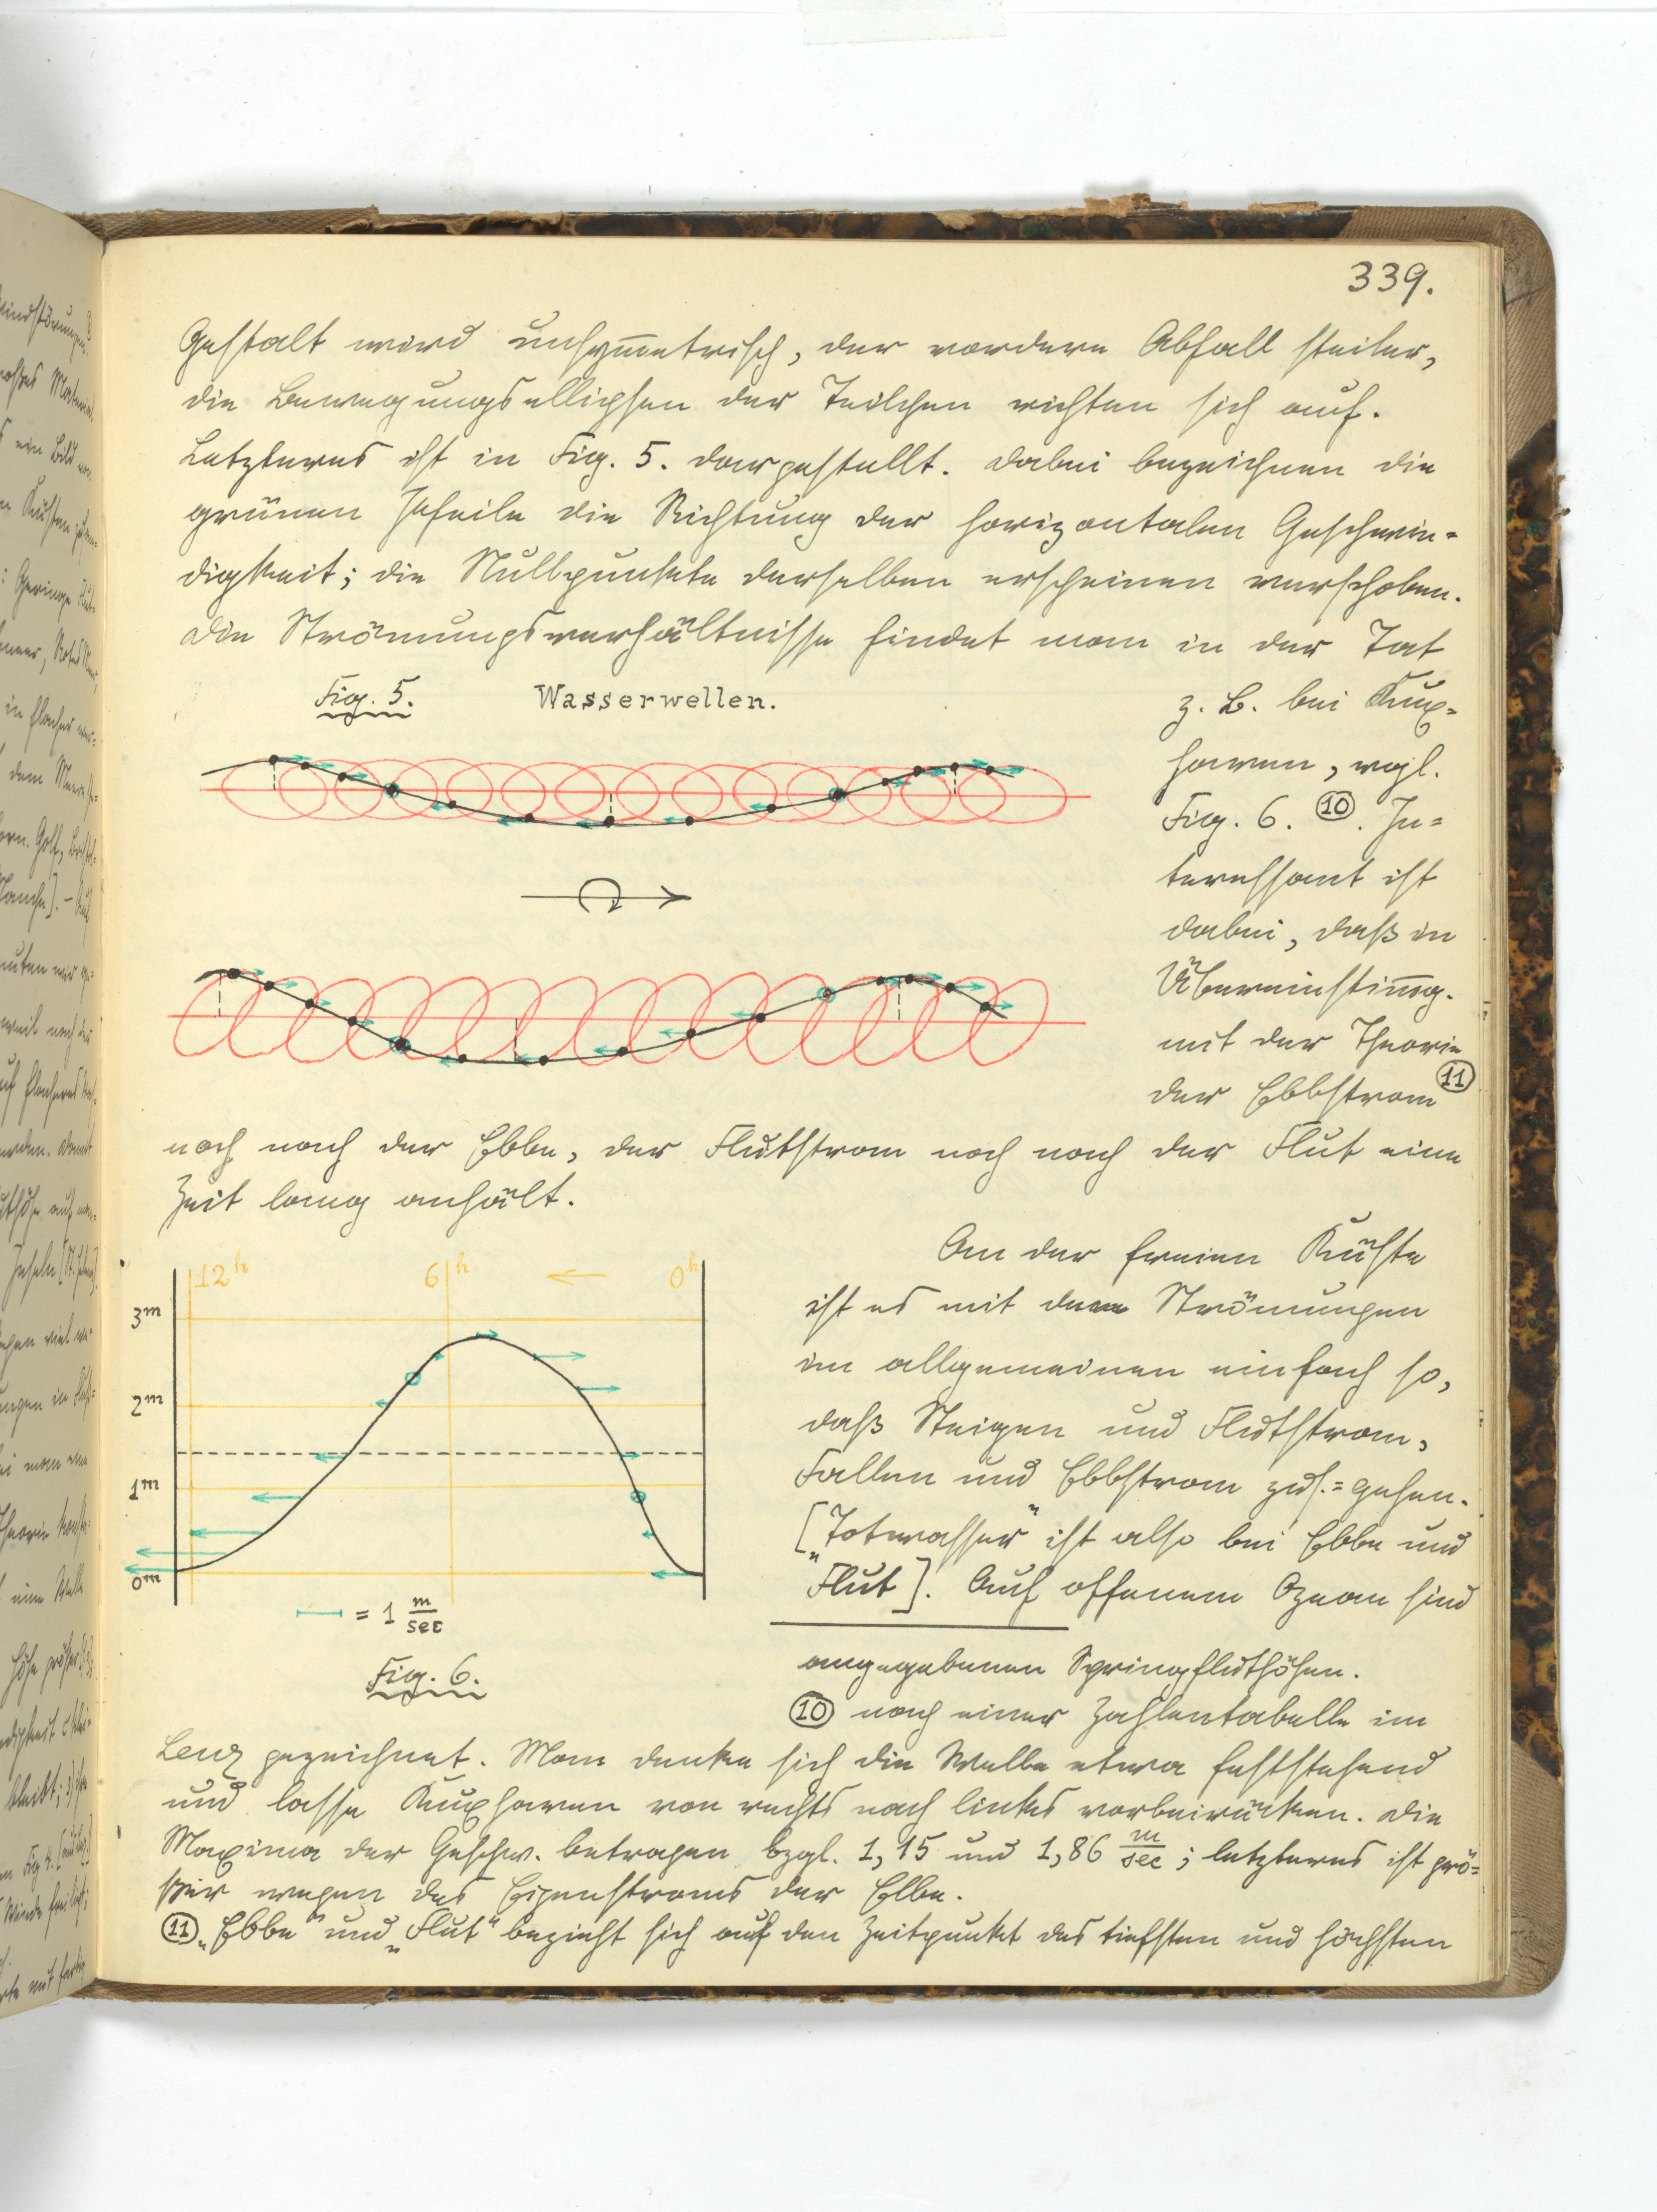 339.
Gestalt wird unsym̅etrisch, der vordere Abfall steiler,
die Bewegungsellipsen der Teilchen richten sich auf.
Letzteres ist in Fig. 5. dargestellt. Dabei bezeichnen die
grünen Pfeile die Richtung der horizontalen Geschwin-
digkeit; die Nullpunkte derselben erscheinen verschoben.
Die Strömungsverhältnisse findet man in der Tat
Fig. 5. Wasserwellen.
z. B. bei Kux-
haven, vgl.
Fig. 6. ⑩. In-
teressant ist
dabei, daß in
Übereinstim̅g.
mit der Theorie
der Ebbstrom ⑪
noch nach der Ebbe, der Flutstrom noch nach der Flut eine
Zeit lang anhält.
12h 6h ← 0h
3m
2m
1m
0m
= 1 m/sec
Fig. 6.
An der freien Küste
ist es mit den Strömungen
im allgemeinen einfach so,
daß Steigen und Flutstrom,
Fallen und Ebbstrom zus.=gehen.
[„Totwasser“ ist also bei Ebbe und
Flut]. Auf offenem Ozean sind
angegebenen Springfluthöhen.
⑩ nach einer Zahlentabelle im
Lenz gezeichnet. Man denke sich die Welle etwa feststehend
und lasse Kuxhaven von rechts nach links vorbeirücken. Die
Maxima der Geschw. betragen bzgl. 1,15 und 1,86 m/sec; letzteres ist grö-
ßer wegen des Eigenstroms der Elbe.
⑪ „Ebbe“ und „Flut“ bezieht sich auf den Zeitpunkt des tiefsten und höchsten